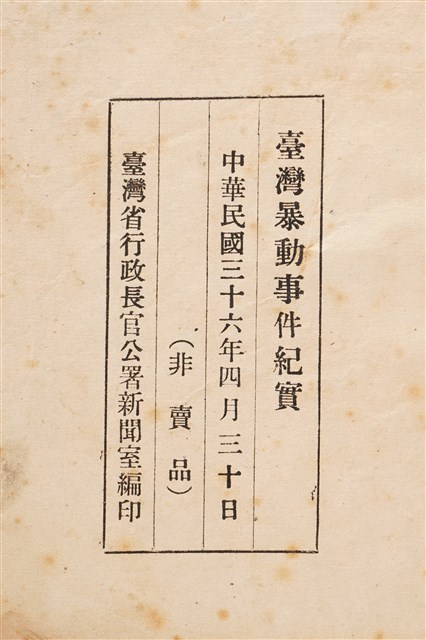 臺灣暴動事件紀實
中華民國三十六年四月三十日
（非賣品）
臺灣省行政長官公署新聞室編印